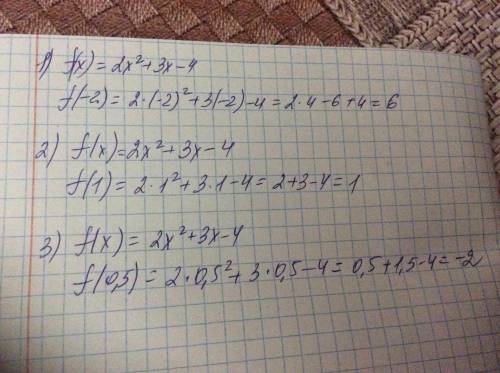 1) f(x) = 2x²+3x-4
f(-2) = 2·(-2)²+3(-2)-4 = 2·4-6+4 = 6
2) f(x) = 2x²+3x-4
f(1) = 2·1²+3·1-4 = 2+3-4 = 1
3) f(x) = 2x²+3x-4
f(0,5) = 2·0,5²+3·0,5-4 = 0,5+1,5-4 = -2